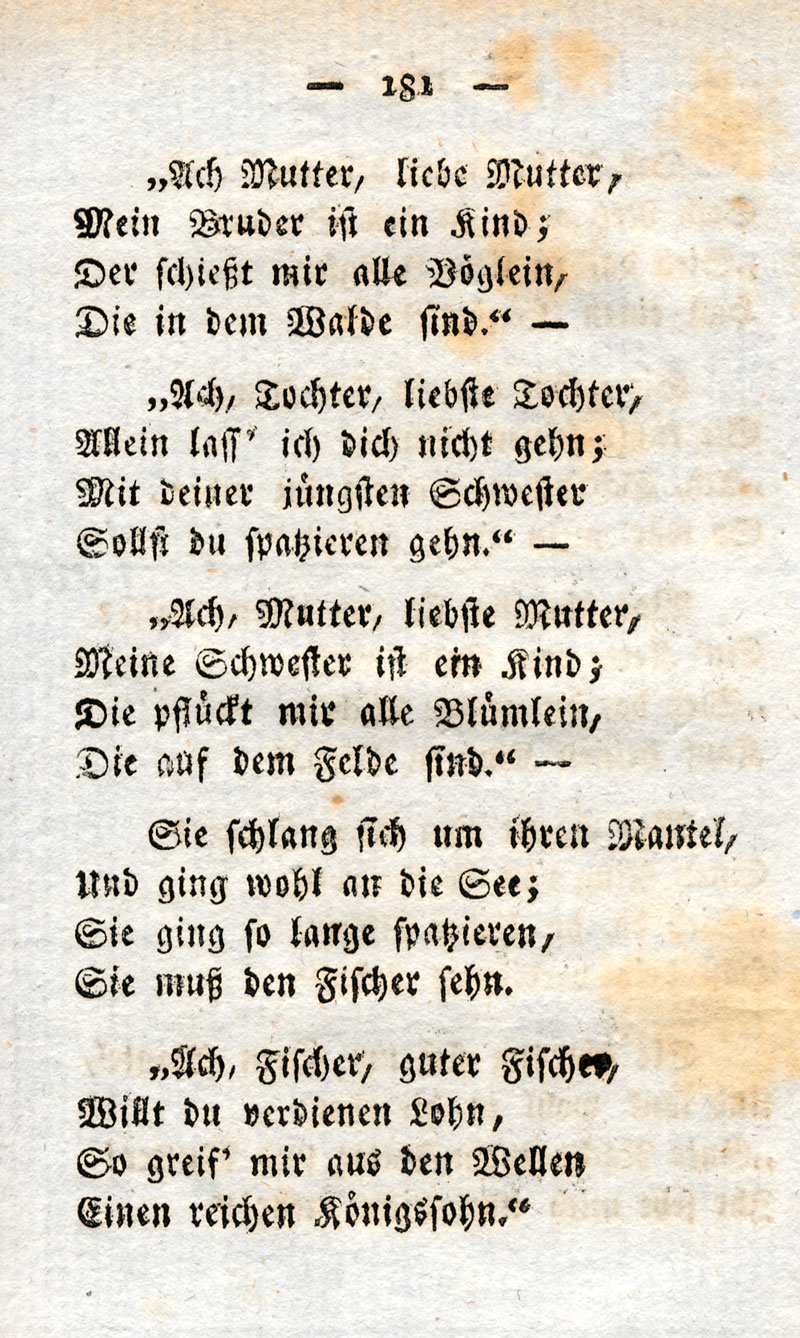 — 181 —
„Ach Mutter, liebe Mutter,
Mein Bruder ist ein Kind;
Der schießt mir alle Vöglein,
Die in dem Walde sind.“ —
„Ach, Tochter, liebste Tochter,
Allein lass' ich dich nicht gehn;
Mit deiner jüngsten Schwester
Sollst du spatzieren gehn.“ —
„Ach, Mutter, liebste Mutter,
Meine Schwester ist ein Kind;
Die pflückt mir alle Blümlein,
Die auf dem Felde sind.“ —
Sie schlang sich um ihren Mantel,
Und ging wohl an die See;
Sie ging so lange spatzieren,
Sie muß den Fischer sehn.
„Ach, Fischer, guter Fischer,
Willt du verdienen Lohn,
So greif' mir aus den Wellen
Einen reichen Königssohn.“